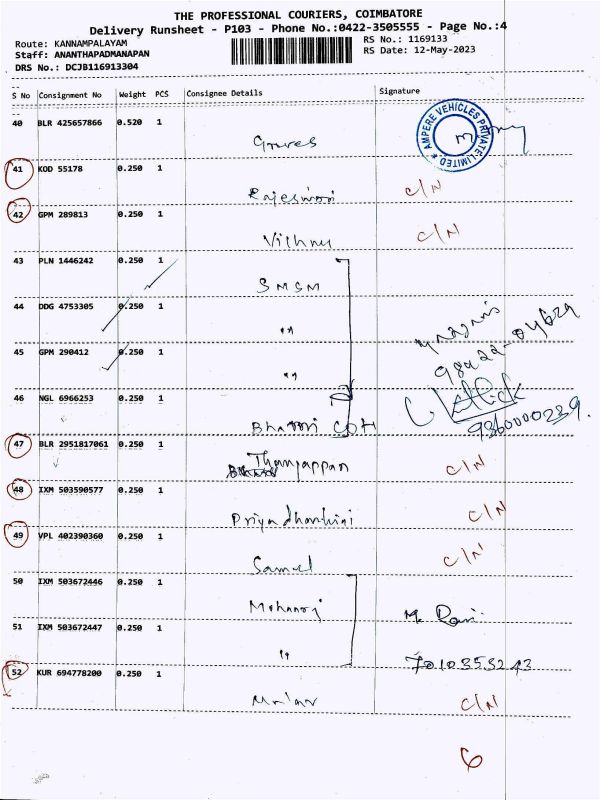 THE PROFESSIONAL COURIERS, COIMBATORE
Delivery Runsheet - P103 - Phone No.:0422-3505555 - Page No.:4
Route: KANNAMPALAYAM
RS No.: 1169133
Staff: ANANTHAPADMANAPAN
RS Date: 12-May-2023
DRS No.: DCJB116913304
S No Consignment No Weight PCS Consignee Details Signature
40 BLR 425657866 0.520 1
AMPERE VEHICLES PRIVATE LIMITED
Greaves
41 KOD 55178 0.250 1
Rajeswari C/N
42 GPM 289813 0.250 1
Vishnu C/N
43 PLN 1446242 0.250 1
SMSM
44 DDG 4753305 0.250 1
"
45 GPM 290412 0.250 1
"
98422-04629
46 NGL 6966253 0.250 1
9360000239.
47 BLR 2951817061 0.250 1
Thangappan C/N
48 IXM 503590577 0.250 1
Priyadharshini C/N
49 VPL 402390360 0.250 1
Samuel C/N
50 IXM 503672446 0.250 1
Mohanraj M. Ravi
51 IXM 503672447 0.250 1
" 7010353243
52 KUR 694778200 0.250 1
C/N
6